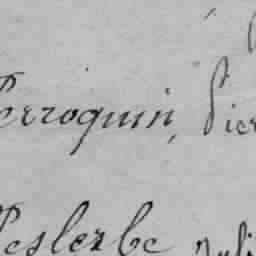 Perroquin, Pier
Leslerbe Juli